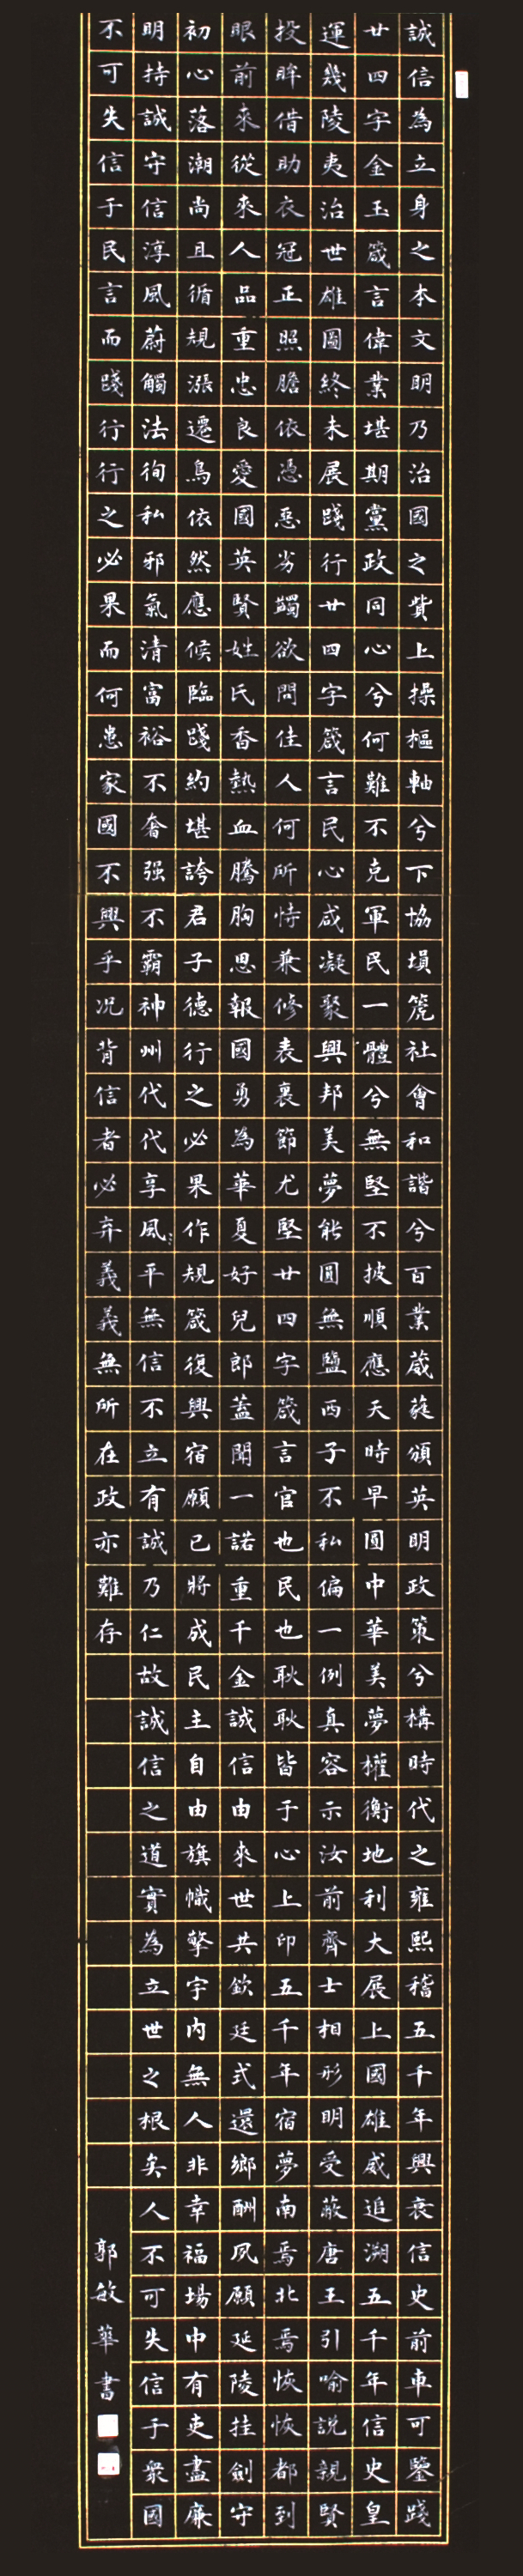 誠信為立身之本文明乃治國之貲上操樞軸兮下協塤篪社會和諧兮百業葳蕤頒英明政策兮構時代之雍熙稽五千年興衰信史前車可鑒踐
廿四字金玉箴言偉業堪期黨政同心兮何難不克軍民一體兮無堅不披順應天時早圓中華美夢權衡地利大展上國雄威追溯五千年信史皇
運幾陵夷治世雄圖終未展踐行廿四字箴言民心咸凝聚興邦美夢能圓無鹽西子不私偏一例真容示汝前齊士相形明受蔽唐王引喻說親賢
投眸借助衣冠正照膽依憑惡劣蠲欲問佳人何所恃兼修表裏節尤堅廿四字箴言官也民也耿耿皆于心上印五千年宿夢南焉北焉恢恢都到
眼前來從來人品重忠良愛國英賢姓氏香熱血騰胸思報國勇為華夏好兒郎蓋聞一諾重千金誠信由來世共欽廷式還鄉酬夙願延陵挂劍守
初心落潮尚且循規漲遷鳥依然應候臨踐約堪誇君子德行之必果作規箴復興宿願已將成民主自由旗幟擎宇內無人非幸福場中有吏盡廉
明持誠守信淳風蔚觸法徇私邪氣清富裕不奢强不霸神州代代享風平無信不立有誠乃仁故誠信之道實為立世之根矣人不可失信于眾國
不可失信于民言而踐行行之必果而何患家國不興乎况背信者必弃義義無所在政亦難存
郭敏華書